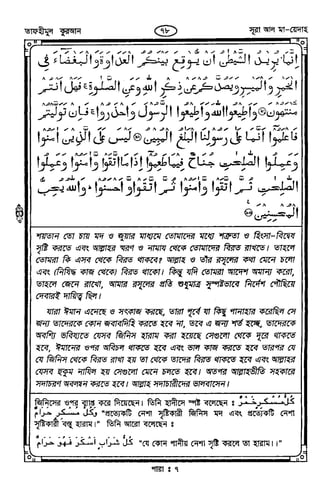 তাফহীমুল কুরআন ৭৮ সূরা আল মা-য়েদাহ
إِنَّمَا يُرِيدُ الشَّيْطٰنُ أَنْ يُّوقِعَ بَيْنَكُمُ الْعَدَاوَةَ وَالْبَغْضَاءَ فِي
الْخَمْرِ وَالْمَيْسِرِ وَيَصُدَّكُمْ عَنْ ذِكْرِ اللهِ وَعَنِ الصَّلٰوةِ ۚ فَهَلْ أَنْتُمْ
مُّنْتَهُونَ ۞ وَأَطِيعُوا اللهَ وَأَطِيعُوا الرَّسُولَ وَاحْذَرُوا ۚ فَإِنْ تَوَلَّيْتُمْ
فَاعْلَمُوا أَنَّمَا عَلٰى رَسُولِنَا الْبَلٰغُ الْمُبِينُ ۞ لَيْسَ عَلَى الَّذِينَ اٰمَنُوا
وَعَمِلُوا الصّٰلِحٰتِ جُنَاحٌ فِيمَا طَعِمُوا إِذَا مَا اتَّقَوْا وَّاٰمَنُوا وَعَمِلُوا
الصّٰلِحٰتِ ثُمَّ اتَّقَوْا وَّاٰمَنُوا ثُمَّ اتَّقَوْا وَّأَحْسَنُوا ۚ وَاللهُ يُحِبُّ
الْمُحْسِنِينَ ۞
শয়তান তো চায় মদ ও জুয়ার মাধ্যমে তোমাদের মধ্যে শত্রুতা ও হিংসা-বিদ্বেষ
সৃষ্টি করতে এবং আল্লাহর স্মরণ ও নামায থেকে তোমাদের বিরত রাখতে। তাহলে
তোমরা কি এসব থেকে বিরত থাকবে? আল্লাহ ও তাঁর রসূলের কথা মেনে চলো
এবং (নিষিদ্ধ কাজ থেকে) বিরত থাকো। কিন্তু যদি তোমরা আদেশ অমান্য করো,
তাহলে জেনে রাখো, আমার রসূলের প্রতি শুধুমাত্র সুস্পষ্টভাবে নির্দেশ পৌঁছিয়ে
দেবারই দায়িত্ব ছিল।
যারা ঈমান এনেছে ও সৎকাজ করছে, তারা পূর্বে যা কিছু পানাহার করেছিল সে
জন্য তাদেরকে কোন জবাবদিহি করতে হবে না, তবে এ জন্য শর্ত হচ্ছে, তাদেরকে
অবশ্যি ভবিষ্যতে যেসব জিনিস হারাম করা হয়েছে সেগুলো থেকে দূরে থাকতে
হবে, ঈমানের ওপর অবিচল থাকতে হবে এবং ভাল কাজ করতে হবে তারপর যে
যে জিনিস থেকে বিরত রাখা হয় তা থেকে তাদের বিরত থাকতে হবে এবং আল্লাহর
যেসব হুকুম নাযিল হয় সেগুলো মেনে চলতে হবে। অতপর আল্লাহভীতি সহকারে
সদাচরণ অবলম্বন করতে হবে। আল্লাহ সদাচারীদের ভালবাসেন।
জিনিসের ওপর ব্যাপ্ত করে দিয়েছেন। তিনি হাদীসে স্পষ্ট বলেছেন : كُلُّ مُسْكِرٍ خَمْرٌ
وَكُلُّ مُسْكِرٍ حَرَامٌ "প্রত্যেকটি নেশা সৃষ্টিকারী জিনিস মদ এবং প্রত্যেকটি নেশা
সৃষ্টিকারী বস্তু হারাম।" তিনি আরো বলেছেন :
كُلُّ شَرَابٍ أَسْكَرَ فَهُوَ حَرَامٌ "যে কোন পানীয় নেশা সৃষ্টি করলে তা হারাম।"
পারা : ৭